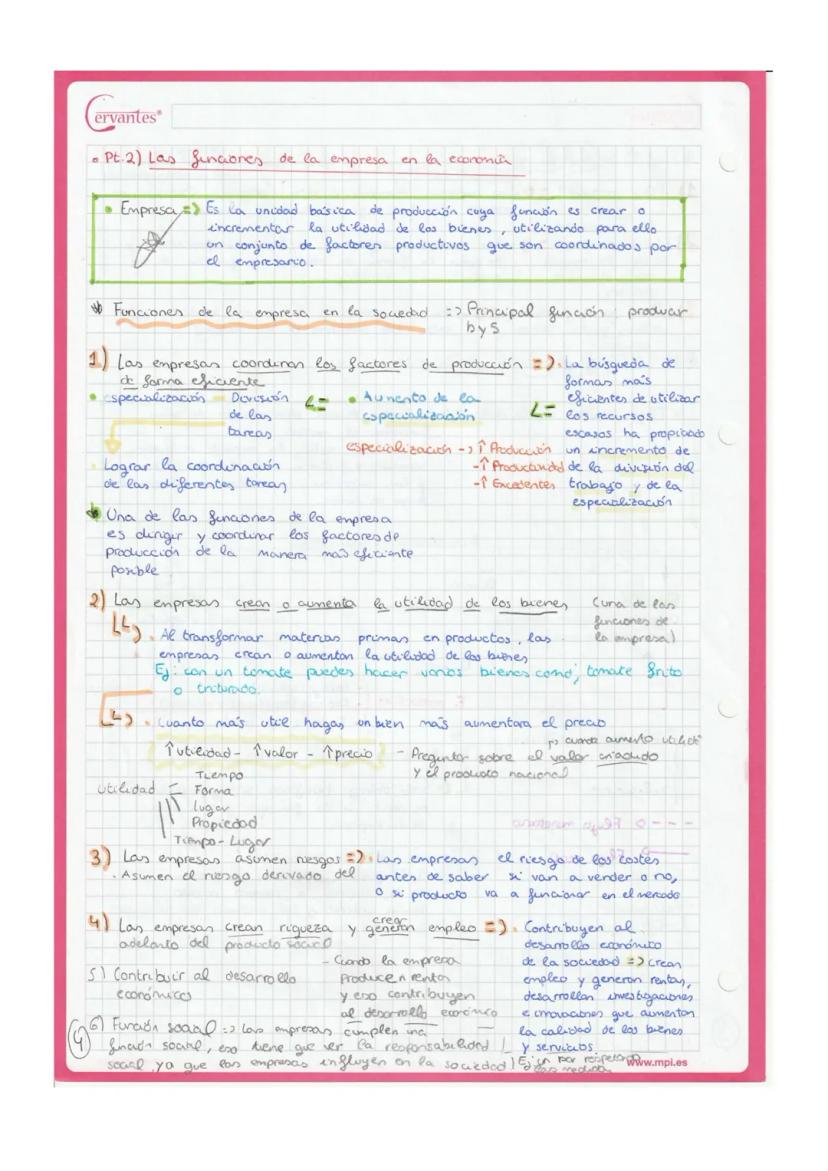 Cervantes®
• Pt.2) Las funciones de la empresa en la economía
• Empresa => Es la unidad básica de producción cuya función es crear o
incrementar la utilidad de los bienes, utilizando para ello
un conjunto de factores productivos que son coordinados por
el empresario.
Funciones de la empresa en la sociedad => Principal función producir
b y s
1) Las empresas coordinan los factores de producción
de forma eficiente
=> • La búsqueda de
formas más
eficientes de utilizar
los recursos
escasos ha propiciado
un incremento de
de la división del
trabajo y de la
especialización
• Aumento de la
especialización
especialización -> ↑ Producción
-↑ Productividad
-↑ Excedentes
• especialización = División
de las
tareas
Lograr la coordinación
de las diferentes tareas
Una de las funciones de la empresa
es dirigir y coordinar los factores de
producción de la manera más eficiente
posible
2) Las empresas crean o aumenta la utilidad de los bienes
(una de las
funciones de
la empresa)
• Al transformar materias primas en productos, las
empresas crean o aumentan la utilidad de los bienes
Ej: con un tomate puedes hacer varios bienes como; tomate frito
o triturado.
• Cuanto más util hagas un bien más aumentara el precio
↑utilidad - ↑valor - ↑precio
- Preguntar sobre el valor añadido
y el producto nacional
cuando aumento utilidad
utilidad
Tiempo
Forma
Lugar
Propiedad
Tiempo - Lugar
3) Las empresas asumen riesgos => • Las empresas el riesgo de los costes
. Asumen el riesgo derivado del antes de saber si van a vender o no,
o si producto va a funcionar en el mercado
4) Las empresas crean riqueza y generan empleo =>
crear
adelanto del producto social
• Contribuyen al
desarrollo económico
de la sociedad => crean
empleo y generan rentas,
desarrollan investigaciones
e innovaciones que aumentan
la calidad de los bienes
y servicios
- Cuando la empresa
producen renta
y eso contribuyen
al desarrollo económico
5) Contribuir al desarrollo
económicos
6) Función social => Las empresas cumplen una
función social, eso tiene que ver la responsabilidad
social, ya que las empresas influyen en la sociedad
4
www.mpi.es